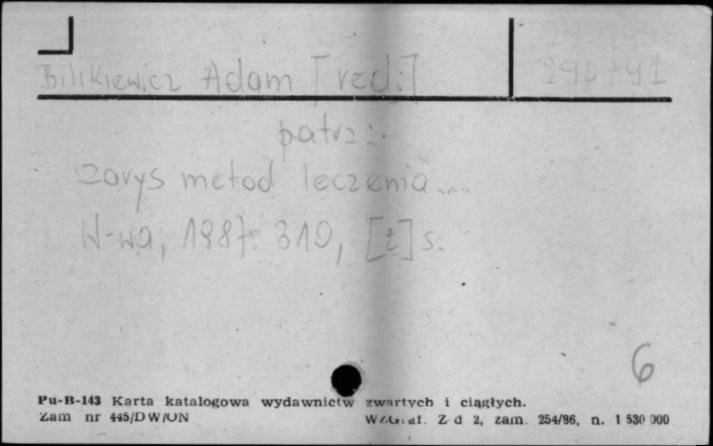 Bilikiewicz Adam [red.]
patrz:
Zarys metod leczenia...
W-wa, 1987. 319, [2] s.
6
Pu-B-143 Karta katalogowa wydawnictw zwartych i ciągłych.
Zam nr 445/DW/UN Zd 2, zam. 254/86, n. 1 530 000